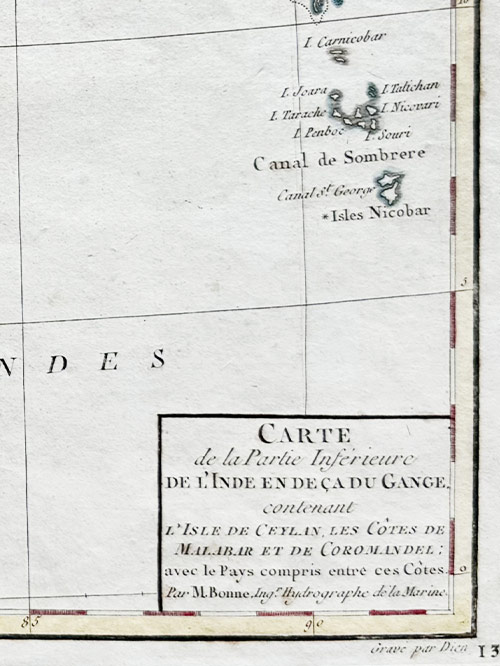 10
I. Carnicobar
I. Joara
I. Talichan
I. Tarache
I. Nicovari
I. Penboc
I. Souri
Canal de Sombrere
Canal S.t George
*Isles Nicobar
5
N D E S
CARTE
de la Partie Inférieure
DE L'INDE EN DEÇA DU GANGE,
contenant
L'ISLE DE CEYLAN, LES CÔTES DE
MALABAR ET DE COROMANDEL;
avec le Pays compris entre ces Côtes.
Par M. Bonne, Ing.r Hydrographe de la Marine.
0
85
90
Gravé par Dien
13